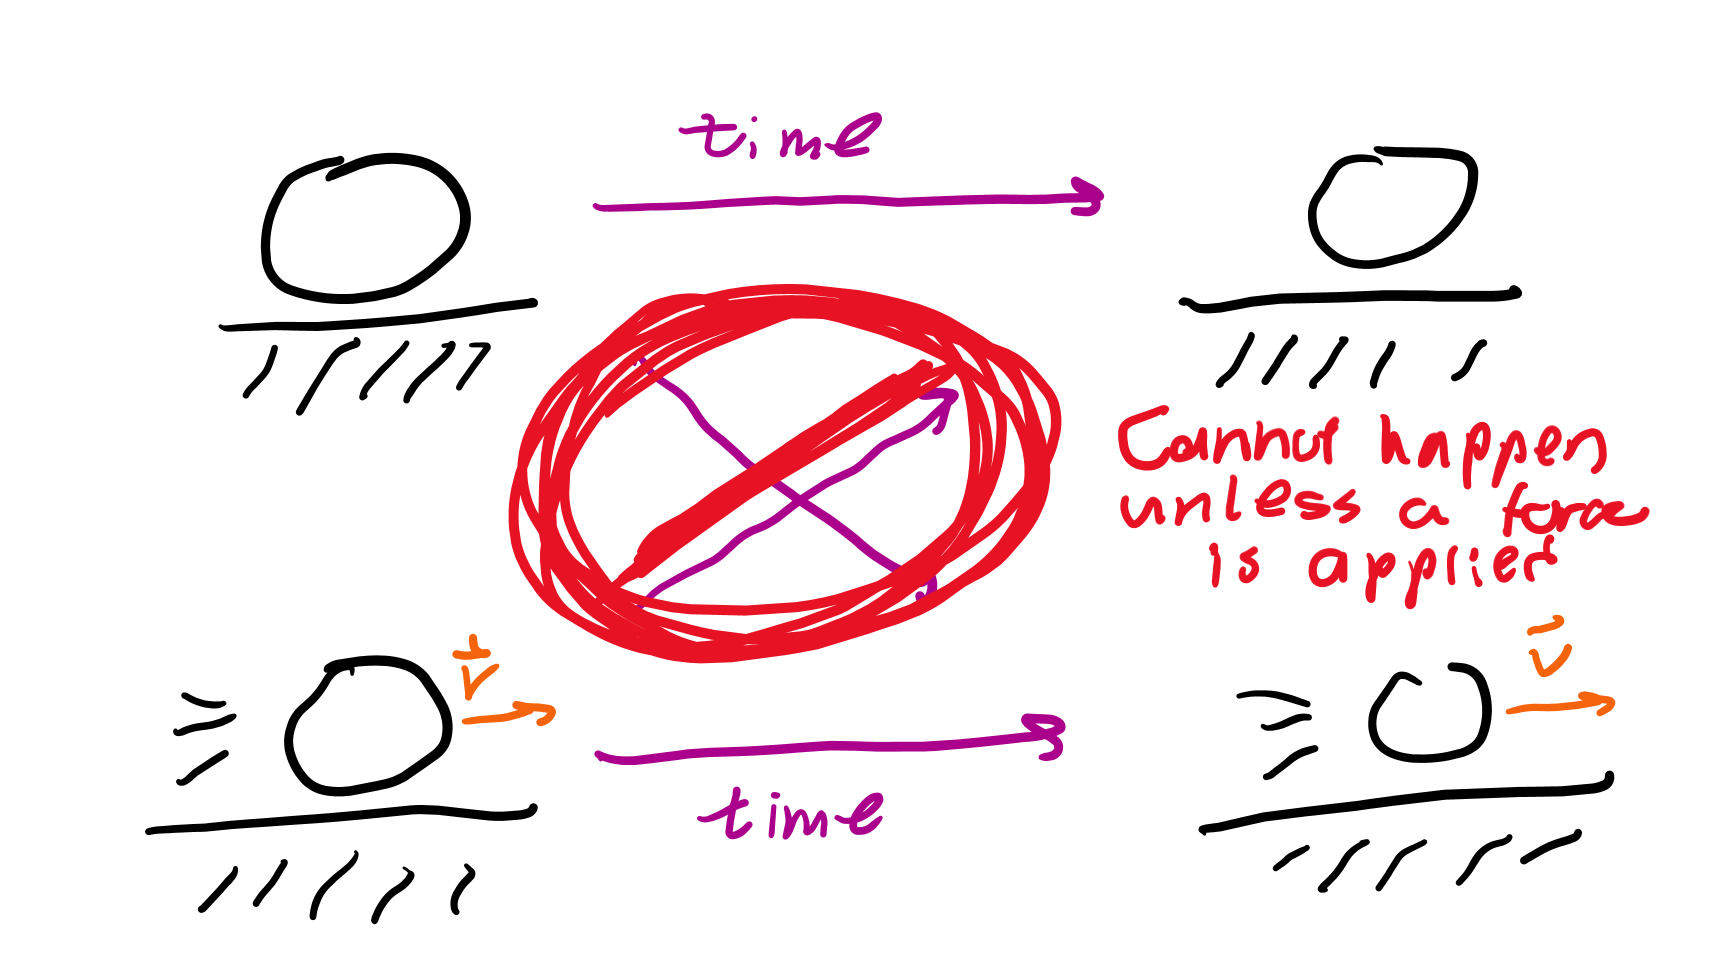 time
Cannot happen
unless a force
is applied
v
v
time